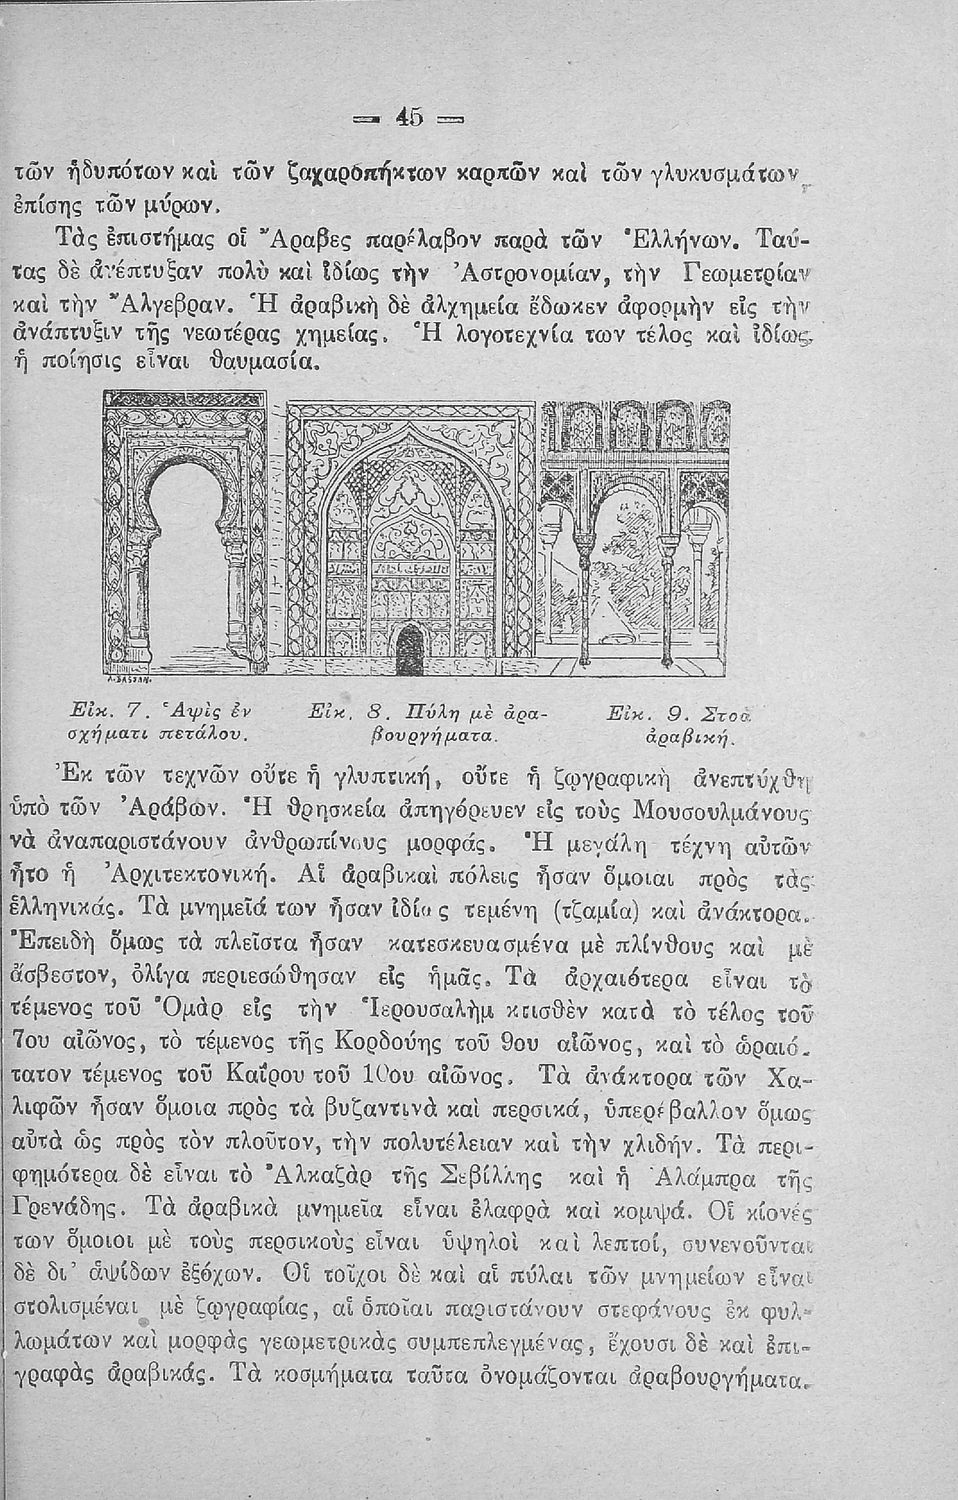 — 45 —
τῶν ἡδυπότων καὶ τῶν ζαχαροπήκτων καρπῶν καὶ τῶν γλυκυσμάτων
ἐπίσης τῶν μύρων.
Τὰς ἐπιστήμας οἱ Ἄραβες παρέλαβον παρὰ τῶν Ἑλλήνων. Ταύ-
τας δὲ ἀνέπτυξαν πολὺ καὶ ἰδίως τὴν Ἀστρονομίαν, τὴν Γεωμετρίαν
καὶ τὴν Ἄλγεβραν. Ἡ ἀραβικὴ δὲ ἀλχημεία ἔδωκεν ἀφορμὴν εἰς τὴν
ἀνάπτυξιν τῆς νεωτέρας χημείας. Ἡ λογοτεχνία των τέλος καὶ ἰδίως
ἡ ποίησις εἶναι θαυμασία.
Εἰκ. 7. Ἁψὶς ἐν
σχήματι πετάλου.
Εἰκ. 8. Πύλη μὲ ἀρα-
βουργήματα.
Εἰκ. 9. Στοὰ
ἀραβική.
Ἐκ τῶν τεχνῶν οὔτε ἡ γλυπτική, οὔτε ἡ ζῳγραφικὴ ἀνεπτύχθη
ὑπὸ τῶν Ἀράβων. Ἡ θρησκεία ἀπηγόρευεν εἰς τοὺς Μουσουλμάνους
νὰ ἀναπαριστάνουν ἀνθρωπίνους μορφάς. Ἡ μεγάλη τέχνη αὐτῶν
ἦτο ἡ Ἀρχιτεκτονική. Αἱ ἀραβικαὶ πόλεις ἦσαν ὅμοιαι πρὸς τὰς
ἑλληνικάς. Τὰ μνημεῖά των ἦσαν ἰδίως τεμένη (τζαμία) καὶ ἀνάκτορα.
Ἐπειδὴ ὅμως τὰ πλεῖστα ἦσαν κατεσκευασμένα μὲ πλίνθους καὶ μὲ
ἄσβεστον, ὀλίγα περιεσώθησαν εἰς ἡμᾶς. Τὰ ἀρχαιότερα εἶναι τὸ
τέμενος τοῦ Ὀμὰρ εἰς τὴν Ἱερουσαλὴμ κτισθὲν κατὰ τὸ τέλος τοῦ
7ου αἰῶνος, τὸ τέμενος τῆς Κορδούης τοῦ 9ου αἰῶνος, καὶ τὸ ὡραιό-
τατον τέμενος τοῦ Καΐρου τοῦ 10ου αἰῶνος. Τὰ ἀνάκτορα τῶν Χα-
λιφῶν ἦσαν ὅμοια πρὸς τὰ βυζαντινὰ καὶ περσικά, ὑπερέβαλλον ὅμως
αὐτὰ ὡς πρὸς τὸν πλοῦτον, τὴν πολυτέλειαν καὶ τὴν χλιδήν. Τὰ περι-
φημότερα δὲ εἶναι τὸ Ἀλκαζὰρ τῆς Σεβίλλης καὶ ἡ Ἀλάμπρα τῆς
Γρενάδης. Τὰ ἀραβικὰ μνημεῖα εἶναι ἐλαφρὰ καὶ κομψά. Οἱ κίονές
των ὅμοιοι μὲ τοὺς περσικοὺς εἶναι ὑψηλοὶ καὶ λεπτοί, συνενοῦνται
δὲ δι’ ἁψίδων ἐξόχων. Οἱ τοῖχοι δὲ καὶ αἱ πύλαι τῶν μνημείων εἶναι
στολισμέναι μὲ ζῳγραφίας, αἱ ὁποῖαι παριστάνουν στεφάνους ἐκ φυλ-
λωμάτων καὶ μορφὰς γεωμετρικὰς συμπεπλεγμένας, ἔχουσι δὲ καὶ ἐπι-
γραφὰς ἀραβικάς. Τὰ κοσμήματα ταῦτα ὀνομάζονται ἀραβουργήματα.